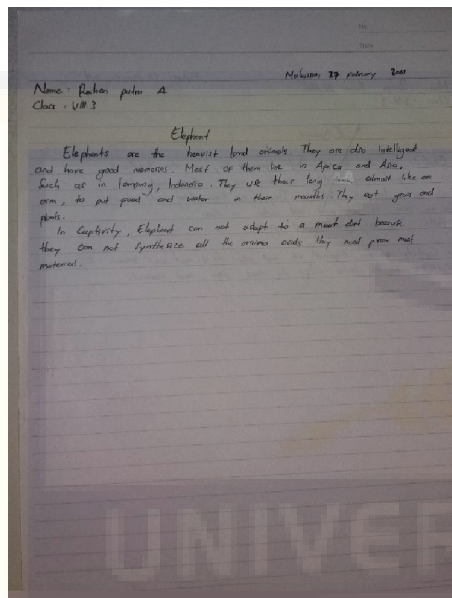 No
Date
Makassar, 27 February
Name : Raihan putra A
Class : VIII.3
Elephant
Elephants are the heaviest land animals. They are also intelligent
and have good memories. Most of them live in Africa and Asia.
Such as in Lampung, Indonesia. They use their long almost like an
arm, to put food and water in their mouths. They eat grass and
plants.
In Captivity, Elephant can not adapt to a meat diet because
they can not Syntheaize all the amino acids they need from meat
material.
UNIVER